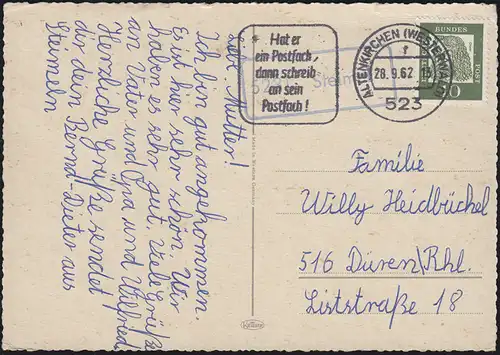 Liebe Mutter!
Ich bin gut angekommen.
Es ist hier sehr schön. Wir
haben es sehr gut. Viele Grüße
an Vater und Opa und Wilfred
Herzliche Grüße sendet
dir dein Bernd-Dieter aus
Steimeln
* Hat er
ein Postfach,
dann schreib
an sein
Postfach!
ALTENKIRCHEN (WESTERWALD)
f
28.9.62
523
DEUTSCHE BUNDESPOST
Familie
Willy Heidbüchel
516 Düren/Rhl.
Liststraße 18